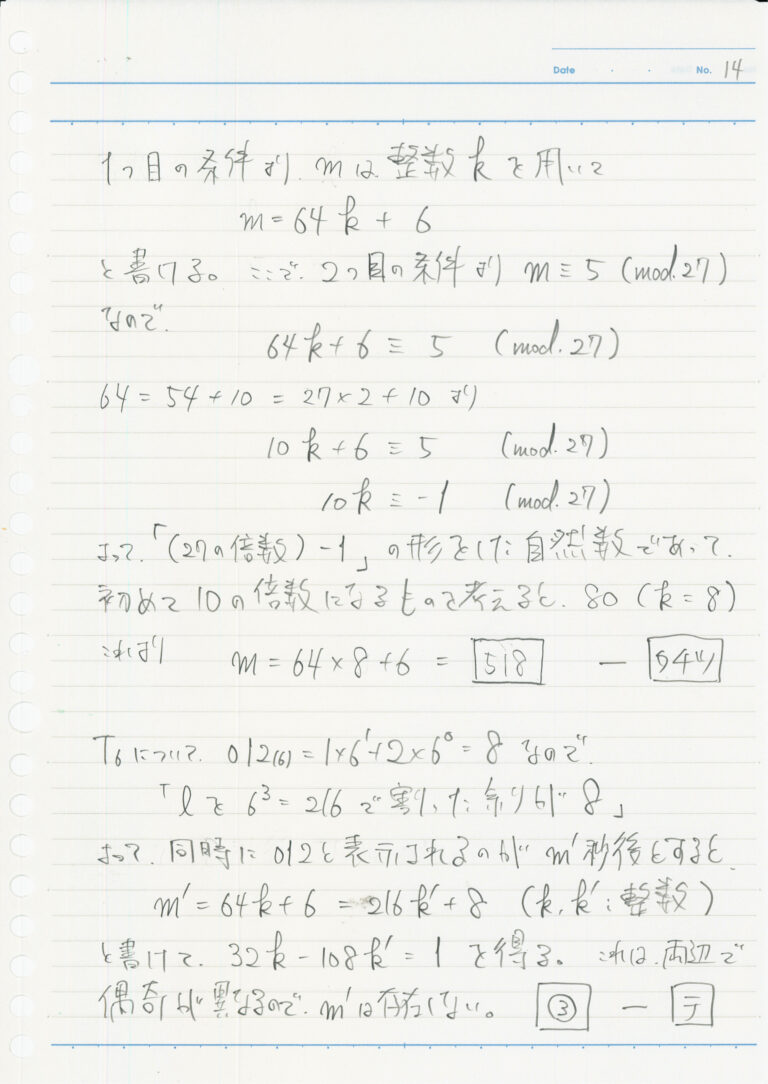 Date ・ ・ No. 14
1つ目の条件より. mは 整数 k を用いて
m = 64k + 6
と書ける。ここで. 2つ目の条件より m ≡ 5 (mod.27)
なので.
64k + 6 ≡ 5 (mod.27)
64 = 54 + 10 = 27 × 2 + 10 より
10k + 6 ≡ 5 (mod.27)
10k ≡ -1 (mod.27)
よって.「(27の倍数) - 1」の形をした自然数であって.
初めて10の倍数になるものを考えると. 80 (k = 8)
これより m = 64 × 8 + 6 = 518 ー タチツ
T6について. 012(6) = 1×6¹+2×6⁰ = 8 なので.
「lを 6³ = 216 で割った余りが 8」
よって. 同時に012と表示されるのが m′秒後とすると.
m′ = 64k + 6 = 216k′ + 8 (k, k′: 整数)
と書けて. 32k - 108k′ = 1 を得る。これは. 両辺で
偶奇が異なるので. m′は存在しない。 ③ ー テ